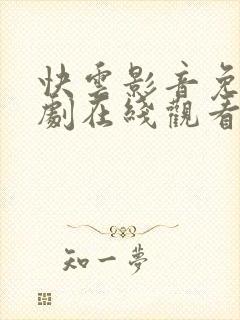 快雲影音免
劇在綫觀看
知一夢